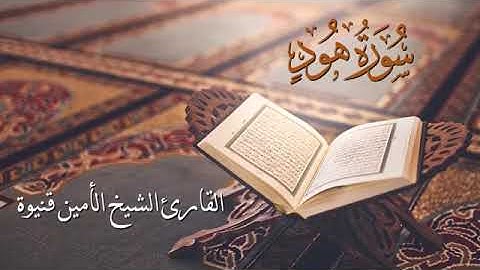 سُورَةُ هُودٍ
القارئ الشيخ الأمين قنيوة